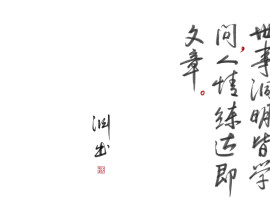 世事洞明皆学
问，人情練达即
文章。